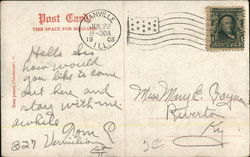 Post Card
THIS SPACE FOR MESSAGE
DANVILLE
JUL 22
8-30A
1908
ILL.
Hello Sis
how would
you like to come
out here and
stay with me
awhile
327 Vermilion St
Miss Mary E.
Riverton
Ky